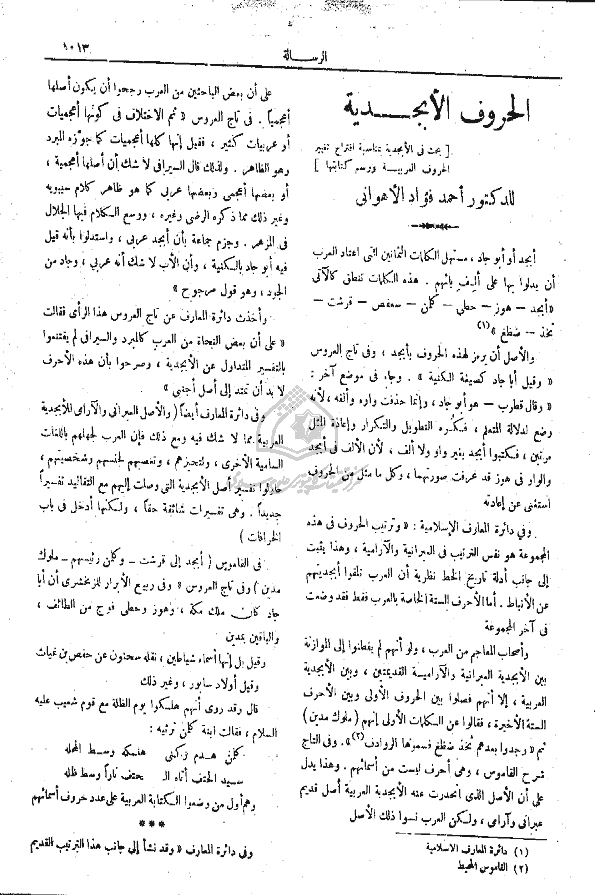 الرسالة
١٠١٣
الحروف الأبجدية
[ بحث فى الأبجدية بمناسبة اقتراح تغيير
الحروف العربية ورسم كتابتها ]
للدكتور أحمد فؤاد الأهوانى
أبجد أو أبو جاد ، مستهل الكلمات الثمانين التى اعتاد العرب
أن يدلوا بها على أليف بائهم . هذه الكلمات تنطق كالآتى
« أبجد – هوز – حطي – كلن – سعفص – قرشت –
نخذ – ضظغ » (١)
والأصل أن يرمز لهذه الحروف بأبجد ، وفى تاج العروس
« وقيل أبا جاد كصيغة الكنية » . وجاء فى موضع آخر :
« وقال قطرب – هو أبو جاد ، وإنما حذفت واره وألفه ، لأنه
رضع لدلالة المتعلم ، فكُره التطويل والتكرار وإعادة المثل
مرتين ، فكتبوا أبجد بغير واو ولا ألف ، لأن الألف فى أبجد
والوار فى هوز قد عرفت صورتهما ، وكل ما مثل من الحروف
استغنى عن إعادته
وفى دائرة المعارف الإسلامية : « وترتيب الحروف فى هذه
المجموعة هو نفس الترتيب فى العبرانية والآرامية ، وهذا يثبت
إلى جانب أدلة تاريخ الخط نظرية أن العرب تلقوا أبجديتهم
عن الأنباط . أما الأحرف الستة الخاصة بالعرب فقط فقد وضعت
فى آخر المجموعة
وأصحاب المعاجم من العرب ، ولو أنهم لم يفطنوا إلى الموازنة
بين الأبجدية العبرانية والآرامية القديمتين ، وبين الأبجدية
العربية ، إلا أنهم فصلوا بين الحروف الأولى وبين الأحرف
الستة الأخيرة ، فقالوا عن الكلمات الأولى إنهم (ملوك مدين)
ثم « وجدوا بعدهم نخذ ضظغ فسموها الروادف » (٢) . وفى التاج
شرح القاموس ، وهى أحرف ليست من أسمائهم . وهذا يدل
على أن الأصل الذى انحدرت عنه الأبجدية العربية أصل قديم
عبرانى وآرامى ، ولكن العرب نسوا ذلك الأصل
(١) دائرة المعارف الاسلامية
(٢) القاموس المحيط
على أن بعض الباحثين من العرب رجحوا أن يكون أصلها
أعجمياً . فى تاج العروس « ثم الاختلاف فى كونها أعجميات
أو عربيات كثير ، فقيل إنها كلها أعجميات كما جوّزه المبرد
وهو الظاهر . ولذلك قال السيرافى لا شك أن أصلها أعجمية ،
أو بعضها أعجمى وبعضها عربى كما هو ظاهر كلام سيبويه
وغير ذلك مما ذكره الرضى وغيره ، ووسع الكلام فيها الجلال
فى المزهر . وجزم جماعة بأن أبجد عربى ، واستدلوا بأنه قيل
فيه أبو جاد بالكنية ، وأن الأب لا شك أنه عربى ، وجاد من
الجود ، وهو قول مرجوح »
وأخذت دائرة المعارف عن تاج العروس هذا الرأى فقالت
« على أن بعض النحاة من العرب كالمبرد والسيرافى لم يقتنعوا
بالتفسير المتداول عن الأبجدية ، وصرحوا بأن هذه الأحرف
لا بد أن تمتد إلى أصل أجنبى »
وفى دائرة المعارف أيضاً ( والأصل العبرانى والآرامى للأبجدية
العربية مما لا شك فيه ومع ذلك فإن العرب لجهلهم باللغات
السامية الأخرى ، ولتحيزهم ، وتعصبهم لجنسهم وشخصيتهم ،
حاولوا تفسير أصل الأبجدية التى وصلت إليهم مع التقاليد تفسيراً
جديداً . وهى تفسيرات شائقة حقاً ، ولكنها أدخل فى باب
الخرافات )
فى القاموس ( أبجد إلى قرشت – وكلن رئيسهم – ملوك
مدين ) وفى تاج العروس « وفى ربيع الأبرار للزمخشرى أن أبا
جاد كان ملك مكة ، وهوز وحطى فوج من الطائف ،
والباقين بمدين
وقيل ال إنها أسماء شياطين ، نقله سحنون عن حفص بن غياث
وقيل أولاد سابور ، وغير ذلك
قال وقد روى أنهم هلكوا يوم الظلة مع قوم شعيب عليه
السلام ، فقالت ابنة كلن ترثيه :
كلن هدم ركنى هلكه وسط المحله
سيد القوم أتاه ال حتف ناراً وسط ظله
وهم أول من وضعوا الكتابة العربية على عدد حروف أسمائهم
***
وفى دائرة المعارف « وقد نشأ إلى جانب هذا الترتيب القديم